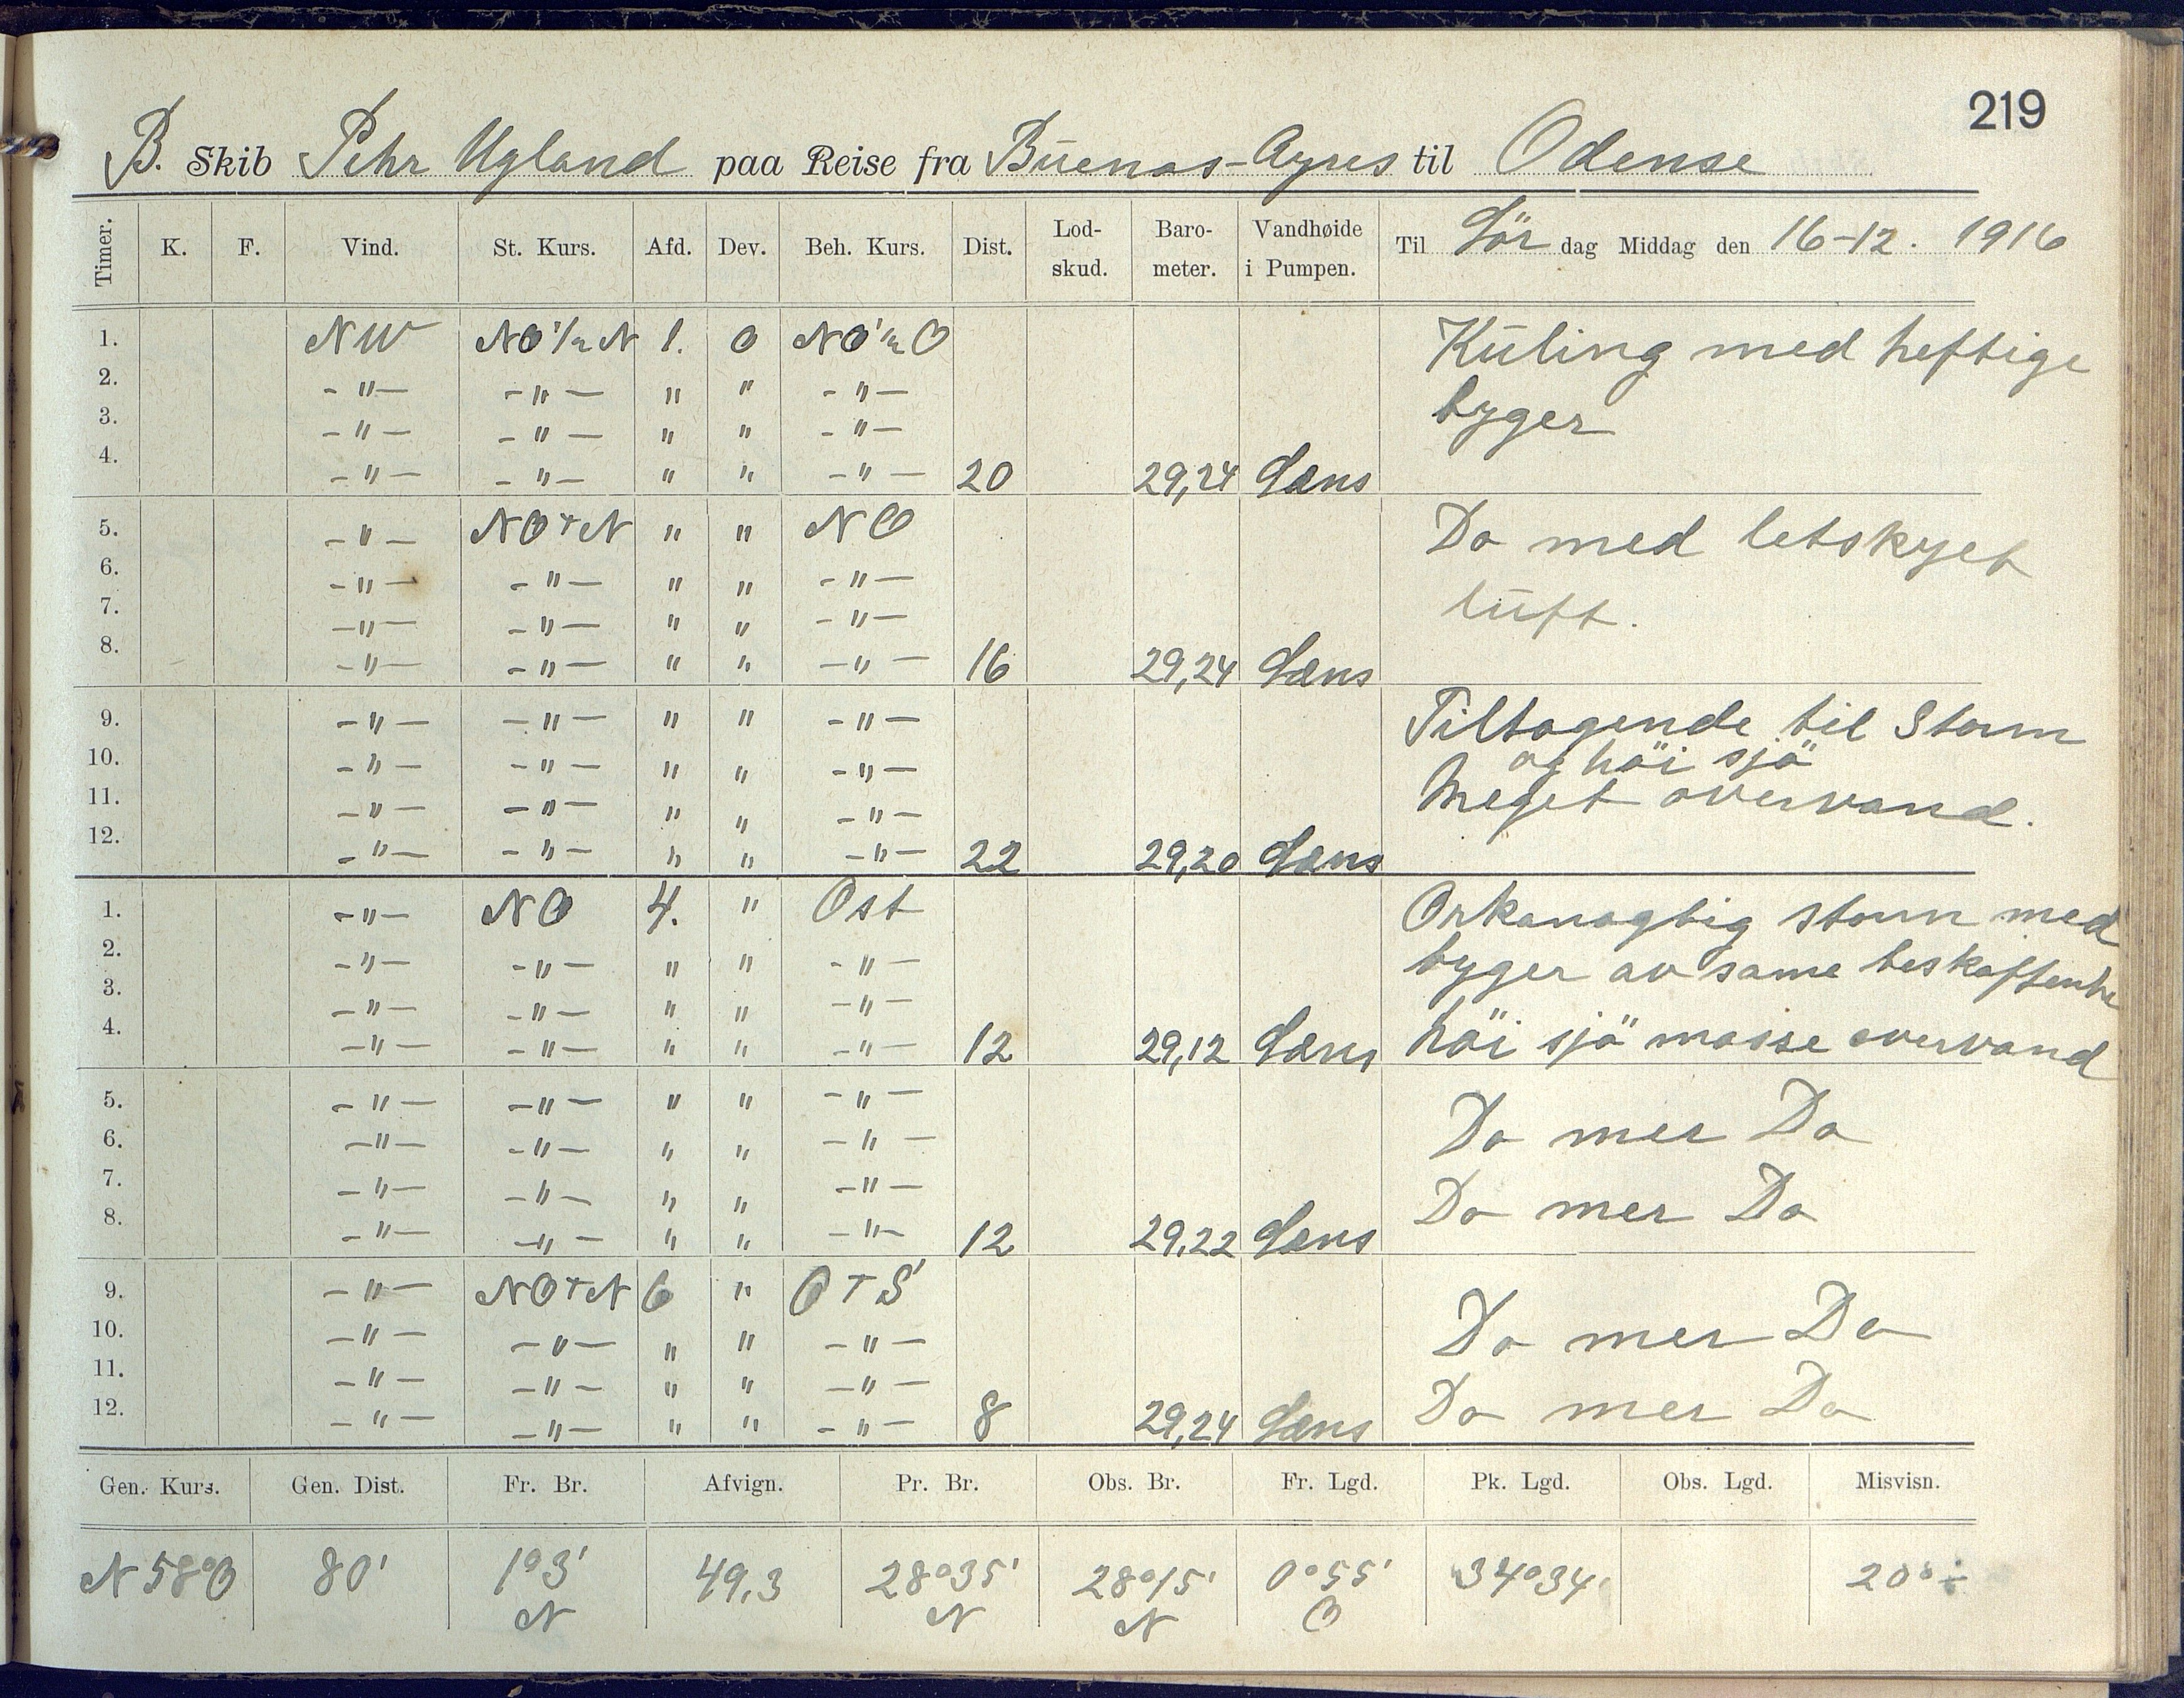 219
B. Skib Pehr Ugland paa Reise fra Buenos-Ayres til Odense
Timer. K. F. Vind. St. Kurs. Afd. Dev. Beh. Kurs. Dist. Lod-skud. Baro-meter. Vandhøide i Pumpen. Til Lör dag Middag den 16-12. 1916
1. NW NO½N 1. 0 NO½O Küling med heftige
2. -"- -"- " " -"- byger
3. -"- -"- " " -"-
4. -"- -"- " " -"- 20 29,24 Læns
5. -"- NOtN " " NO Do med letskyet
6. -"- -"- " " -"- lüft.
7. -"- -"- " " -"-
8. -"- -"- " " -"- 16 29,24 Læns
9. -"- -"- " " -"- Tiltagende til Storm
10. -"- -"- " " -"- og höi sjö
11. -"- -"- " " -"- Meget overvand.
12. -"- -"- " " -"- 22 29,20 Læns
1. -"- NO 4. " Ost Orkanagtig storm med
2. -"- -"- " " -"- byger av same beskaffenhe
3. -"- -"- " " -"-
4. -"- -"- " " -"- 12 29,12 Læns höi sjö masse overvand
5. -"- -"- " " -"- Do mer Do
6. -"- -"- " " -"-
7. -"- -"- " " -"- Do mer Do
8. -"- -"- " " -"- 12 29,22 Læns
9. -"- NOtN 6 " OTS Do mer Do
10. -"- -"- " " -"-
11. -"- -"- " " -"- Do mer Do
12. -"- -"- " " -"- 8 29,24 Læns
Gen. Kurs. Gen. Dist. Fr. Br. Afvign. Pr. Br. Obs. Br. Fr. Lgd. Pk. Lgd. Obs. Lgd. Misvisn.
N 58°O 80' 1°3' 49,3 28°35' 28°15' 0°55' 34°34' 20° ÷
N N N O